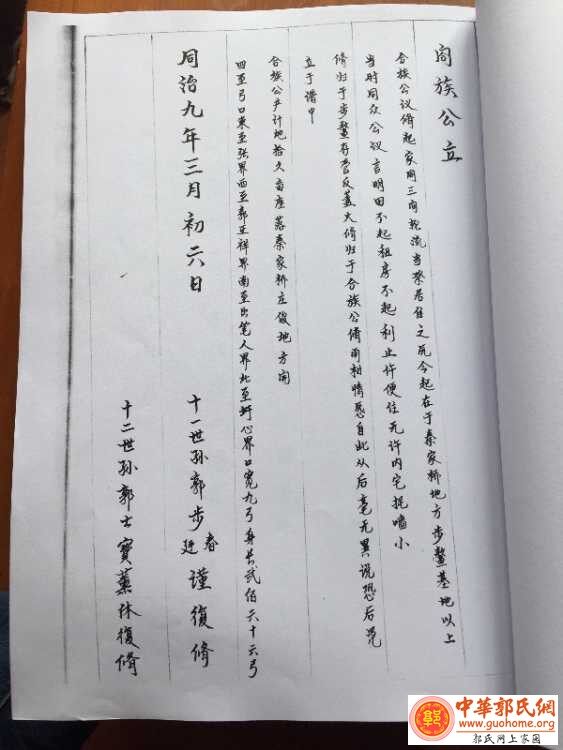 阖族公立
合族公议脩起家周三间轮流当祭居住之瓦今起在于秦家桥地方步鳌基地以上
当时同众公议言明田不起租房不起利止许便住无许内宅扯墙小
脩归于步鳌存营反盖大脩归于合族公脩两相情愿自此从后毫无異说恐后凭
立于谱中
合族公产计地拾久亩座落秦家桥左俊地方间
四至弓口東至张界西至郭至祥界南至出笔人界北至圩心界口宽九弓身长贰佰六十六弓
同治九年三月初六日
十一世孙郭步春廷谨復脩
十二世孙郭士宝薰林復脩
中華郭氏網
www.guohome.org
郭氏网上家园